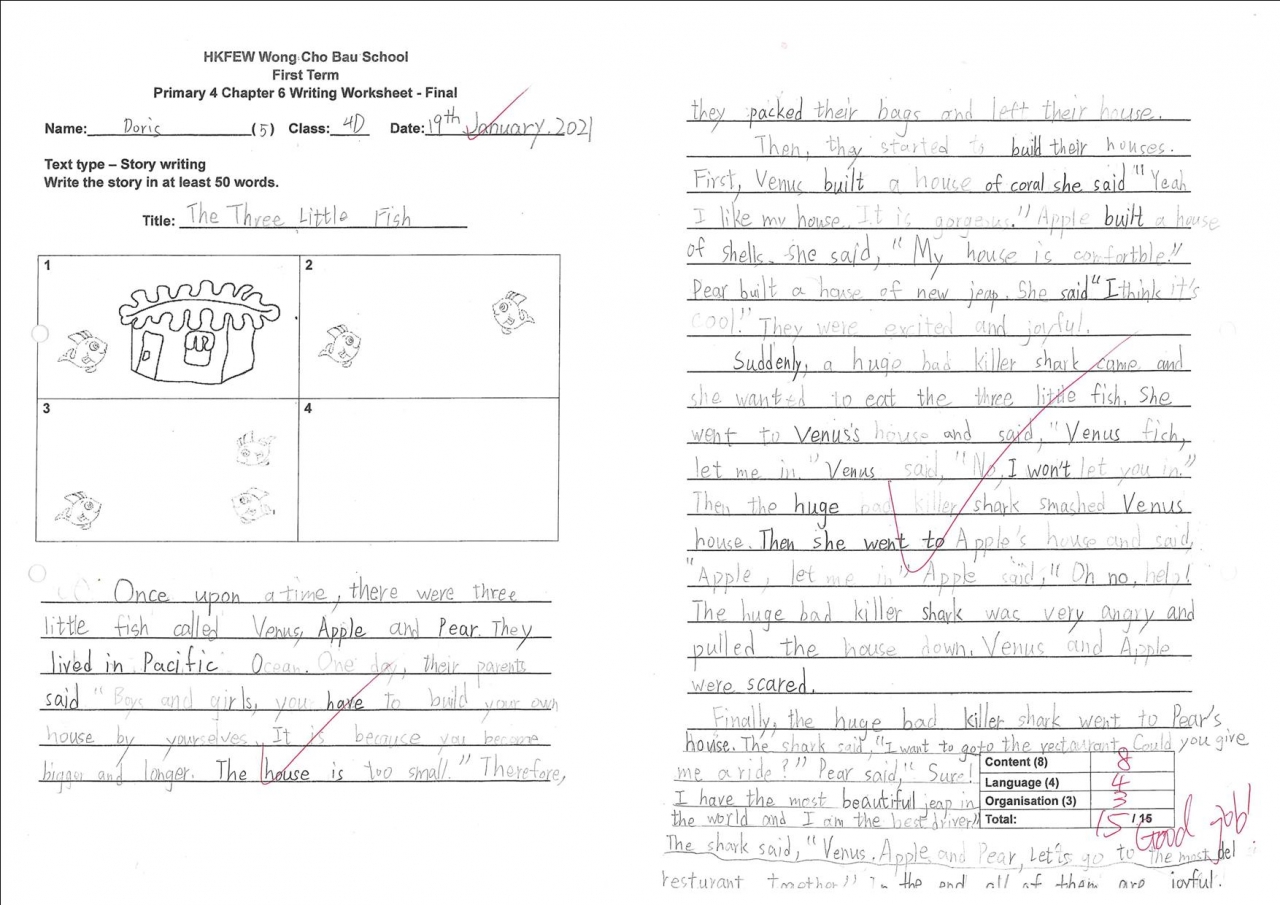 HKFEW Wong Cho Bau School
First Term
Primary 4 Chapter 6 Writing Worksheet - Final
Name: Doris (5) Class: 4D Date: 19th January, 2021
Text type – Story writing
Write the story in at least 50 words.
Title: The Three Little Fish
1
2
3
4
Once upon a time, there were three
little fish called Venus, Apple and Pear. They
lived in Pacific Ocean. One day, their parents
said "Boys and girls, you have to build your own
house by yourselves. It is because you become
bigger and longer. The house is too small." Therefore,
they packed their bags and left their house.
Then, they started to build their houses.
First, Venus built a house of coral she said "Yeah
I like my house. It is gorgeous." Apple built a house
of shells. She said, "My house is comfortble."
Pear built a house of new jeap. She said "I think it's
cool!" They were excited and joyful.
Suddenly, a huge bad killer shark came and
she wanted to eat the three little fish. She
went to Venus's house and said, "Venus fich,
let me in." Venus said, "No, I won't let you in."
Then the huge bad killer shark smashed Venus
house. Then she went to Apple's house and said,
"Apple, let me in" Apple said, "Oh no, help!
The huge bad killer shark was very angry and
pulled the house down. Venus and Apple
were scared.
Finally, the huge bad killer shark went to Pear's
house. The shark said, "I want to go to the restaurant. Could you give
me a ride?" Pear said, "Sure!
I have the most beautiful jeap in
the world and I am the best driver"
The shark said, "Venus, Apple and Pear, Let's go to the most del
resturant together" In the end all of them are joyful.
Content (8) 8
Language (4) 4
Organisation (3) 3
Total: 15 / 15
Good job!